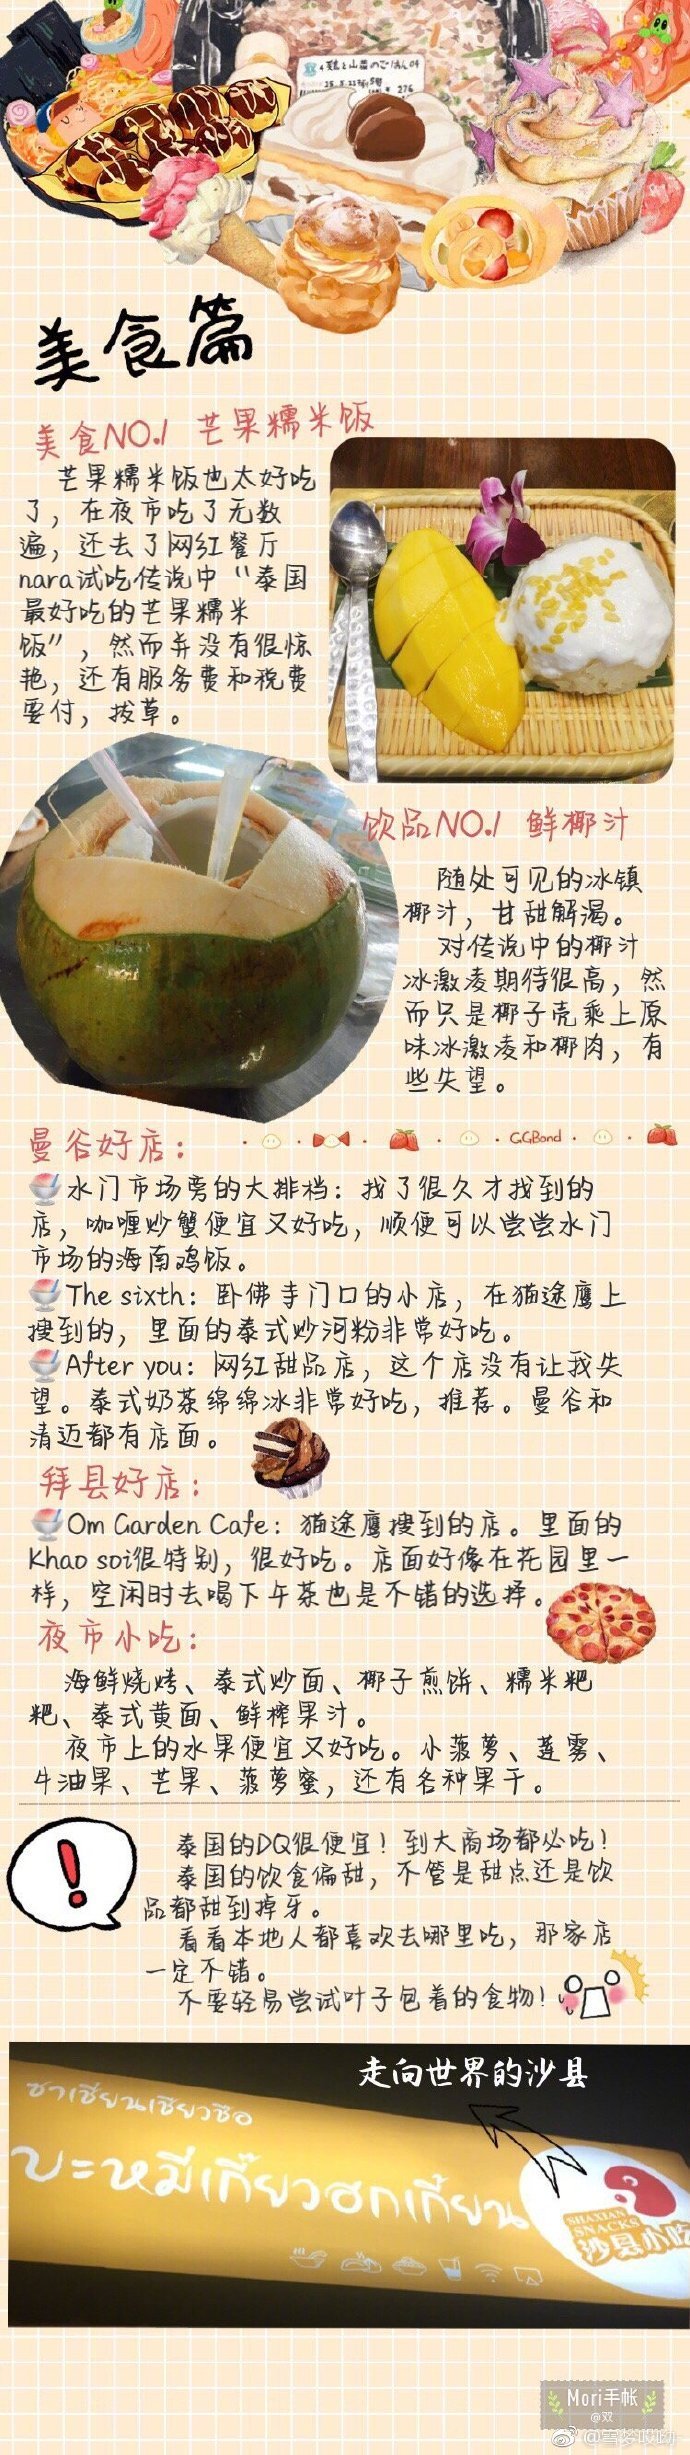 4鶏と山菜のごはん04
276
美食篇
美食NO.1 芒果糯米饭
芒果糯米饭也太好吃
了，在夜市吃了无数
遍，还去了网红餐厅
nara试吃传说中“泰国
最好吃的芒果糯米
饭”，然而并没有很惊
艳，还有服务费和税费
要付，拔草。
饮品NO.1 鲜椰汁
随处可见的冰镇
椰汁，甘甜解渴。
对传说中的椰汁
冰激凌期待很高，然
而只是椰子壳乘上原
味冰激凌和椰肉，有
些失望。
曼谷好店：
G.G.Bond
水门市场旁的大排档：找了很久才找到的
店，咖喱炒蟹便宜又好吃，顺便可以尝尝水门
市场的海南鸡饭。
The sixth：卧佛寺门口的小店，在猫途鹰上
搜到的，里面的泰式炒河粉非常好吃。
After you：网红甜品店，这个店没有让我失
望。泰式奶茶绵绵冰非常好吃，推荐。曼谷和
清迈都有店面。
拜县好店：
Om Garden Cafe：猫途鹰搜到的店。里面的
Khao soi很特别，很好吃。店面好像在花园里一
样，空闲时去喝下午茶也是不错的选择。
夜市小吃：
海鲜烧烤、泰式炒面、椰子煎饼、糯米粑
粑、泰式黄面、鲜榨果汁。
夜市上的水果便宜又好吃。小菠萝、莲雾、
牛油果、芒果、菠萝蜜，还有各种果干。
泰国的DQ很便宜！到大商场都必吃！
泰国的饮食偏甜，不管是甜点还是饮
品都甜到掉牙。
看看本地人都喜欢去哪里吃，那家店
一定不错。
不要轻易尝试叶子包着的食物！
走向世界的沙县
ซาเซียนเซียวซือ
บะหมี่เกี๊ยวฮกเกี้ยน
SHAXIAN
SNACKS
沙县小吃
Mori手帐
@双
@雪梦哎呦-